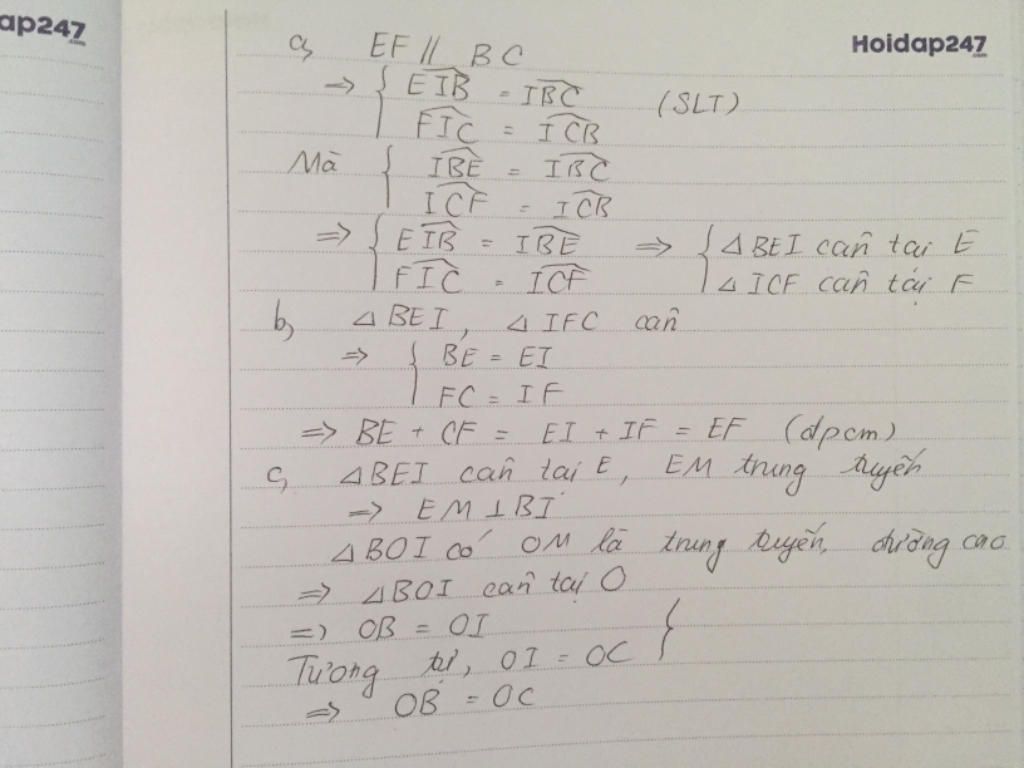 ap247
.com
Hoidap247
.com
a, EF // BC
=> { EIB = IBC (SLT)
FIC = ICB
Mà { IBE = IBC
ICF = ICB
=> { EIB = IBE => { △BEI cân tại E
FIC = ICF △ICF cân tại F
b, △BEI, △IFC cân
=> { BE = EI
FC = IF
=> BE + CF = EI + IF = EF (đpcm)
c, △BEI cân tại E, EM trung tuyến
=> EM ⊥ BI
△BOI có OM là trung tuyến, đường cao
=> △BOI cân tại O
=> OB = OI }
Tương tự, OI = OC
=> OB = OC